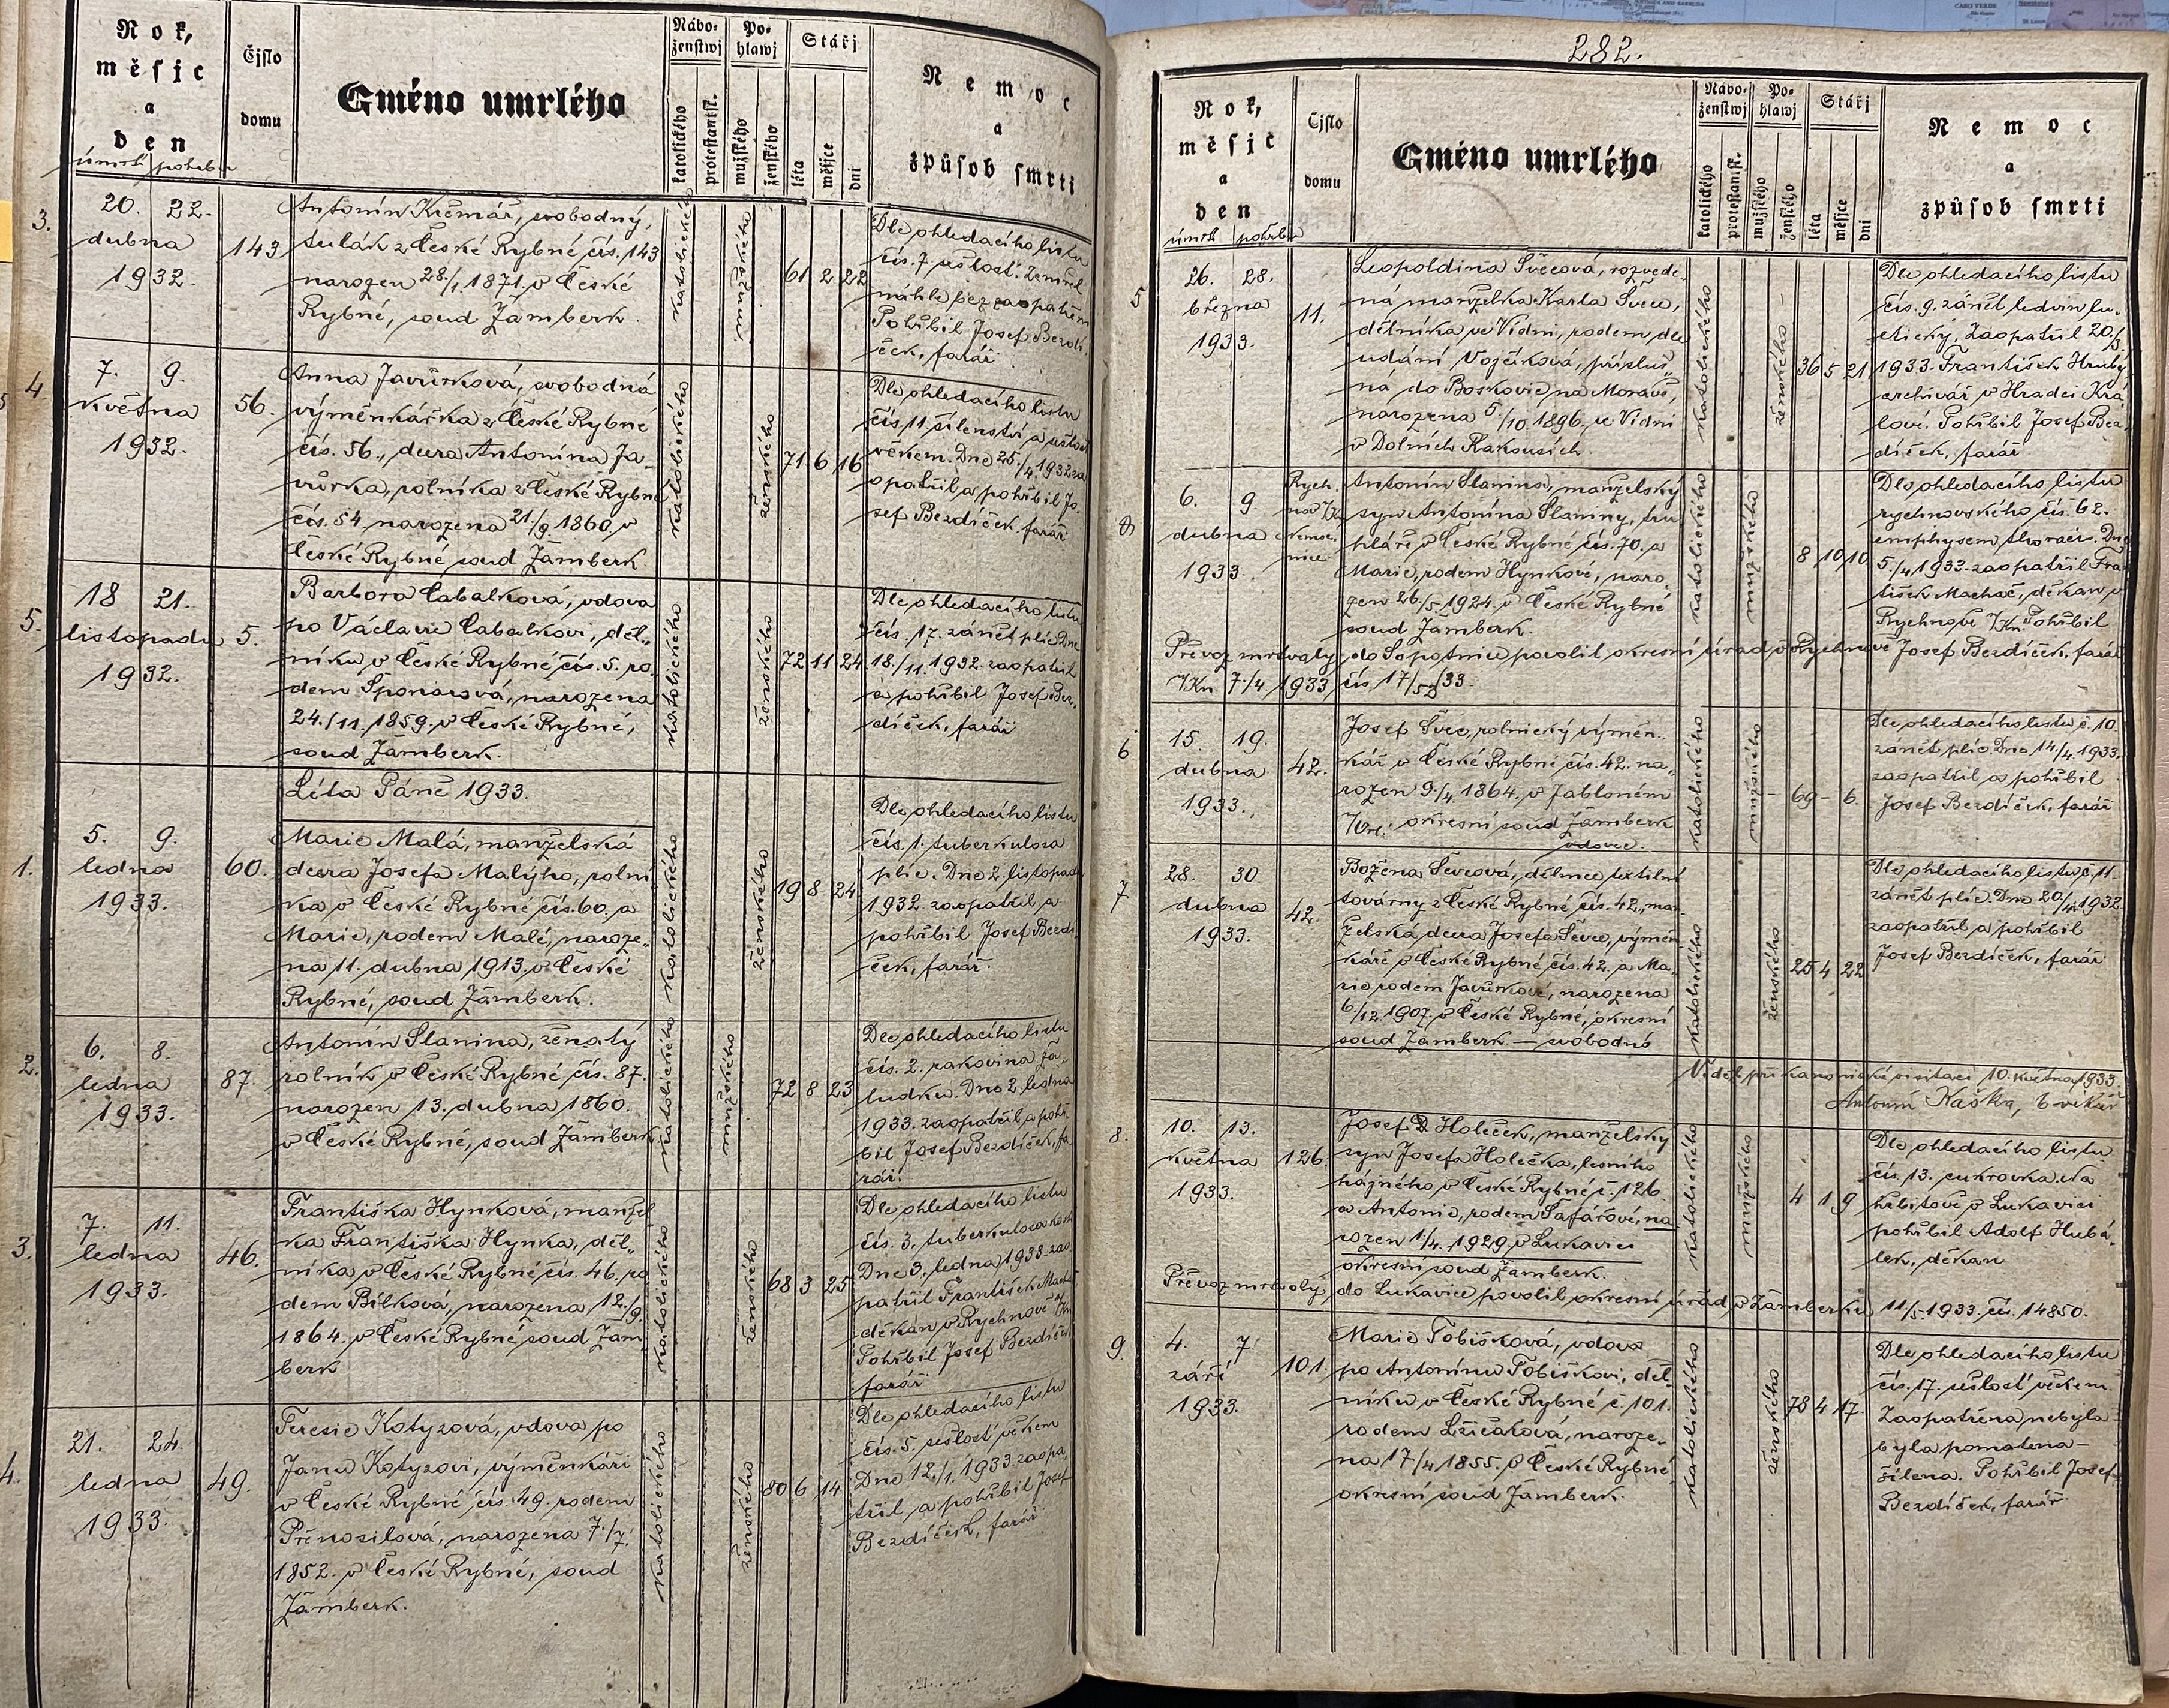 Rok,
měsjc
a
den
úmrtí pohřbu
Čjslo
domu
Gméno umrlého
Nábo-
ženstwj
katolického
protestantsk.
Po-
hlawj
mužského
ženského
Stářj
léta
měsjce
dni
Nemoc
a
způsob smrti
3.
20. 22.
dubna
1932.
143
Antonín Krčmář, svobodný,
tulák z České Rybné čís. 143
narozen 28./1. 1871. v České
Rybné, soud Žamberk.
katolického
mužského
61 2 22
Dle ohledacího listu
čís. 7 sešlost. Zemřel
náhle bez zaopatření
Pohřbil Josef Bezdí-
ček, farář
4.
7. 9.
května
1932.
56.
Anna Javůrková, svobodná
výměnkářka z České Rybné
čís. 56., dcera Antonína Ja-
vůrka, rolníka z České Rybné
čís. 54 narozena 21/9 1860, v
České Rybné soud Žamberk.
katolického
ženského
71 6 16
Dle ohledacího listu
čís. 11. šílenství a sešlost
věkem. Dne 25./4 1932 za-
opatřil a pohřbil Jo-
sef Bezdíček, farář
5.
18 21.
listopadu
1932.
5.
Barbora Cabalková, vdova
po Václavu Cabalkovi, děl-
níku v České Rybné čís. 5. ro-
dem Šponarová, narozena
24./11. 1859. v České Rybné,
soud Žamberk.
katolického
ženského
72 11 24
Dle ohledacího listu
čís. 17. zánět plic. Dne
18./11. 1932. zaopatřil
a pohřbil Josef Bez-
díček, farář
Léta Páně 1933.
1.
5. 9.
ledna
1933.
60.
Marie Malá, manželská
dcera Josefa Malýho, rolní-
ka v České Rybné čís. 60. a
Marie, rodem Malé, naroze-
na 11. dubna 1913. v České
Rybné, soud Žamberk.
katolického
ženského
19 8 24
Dle ohledacího listu
čís. 1. tuberkulosa
plic. Dne 2 listopadu
1932. zaopatřil a
pohřbil Josef Bezdí-
ček, farář.
2.
6. 8.
ledna
1933.
87.
Antonín Slanina, ženatý
rolník v České Rybné čís. 87.
narozen 13. dubna 1860.
v České Rybné, soud Žamberk
katolického
mužského
72 8 23
Dle ohledacího listu
čís. 2. rakovina ža-
ludku. Dne 2. ledna
1933. zaopatřil a pohř-
bil Josef Bezdíček, fa-
rář.
3.
7. 11.
ledna
1933.
46.
Františka Hynková, manžel-
ka Františka Hynka, děl-
níka v České Rybné čís. 46, ro-
dem Bílková, narozena 12./9.
1864. v České Rybné soud Žam-
berk
katolického
ženského
68 3 25
Dle ohledacího listu
čís. 3. tuberkulosa kostí
Dne 3. ledna 1933. zao-
patřil František Machač
děkan v Rychnově n/Kn
Pohřbil Josef Bezdíček
farář
4.
21. 24.
ledna
1933.
49.
Teresie Kotyzová, vdova po
Janu Kotyzovi, výměnkáři
v České Rybné čís. 49. rodem
Přenosilová, narozena 7./7.
1852. v České Rybné, soud
Žamberk.
katolického
ženského
80 6 14
Dle ohledacího listu
čís. 5. sešlost věkem
Dne 12./1. 1933. zaopa-
třil a pohřbil Josef
Bezdíček, farář
282.
Rok,
měsjc
a
den
úmrtí pohřbu
Čjslo
domu
Gméno umrlého
Nábo-
ženstwj
katolického
protestantsk.
Po-
hlawj
mužského
ženského
Stářj
léta
měsjce
dni
Nemoc
a
způsob smrti
5
26. 28.
března
1933.
11.
Leopoldina Švecová, rozvede-
ná manželka Karla Švece,
dělníka ve Vídni, rodem dle
udání Vojčíková, přísluš-
ná do Boskovic na Moravě,
narozena 5./10. 1896. ve Vídni
v Dolních Rakousích.
katolického
ženského
36 5 21
Dle ohledacího listu
čís. 9. zánět ledvin lu-
etický. Zaopatřil 20./3.
1933. František Hrubý
archivář v Hradci Krá-
lové. Pohřbil Josef Bez-
díček, farář
6. 9.
dubna
1933.
Rych-
nov n/Kn
nemoc-
nice
Antonín Slanina, manželský
syn Antonína Slaniny, tru-
hláře v České Rybné čís. 70. a
Marie, rodem Hynkové, naro-
zen 26./5. 1924. v České Rybné
soud Žamberk.
katolického
mužského
8 10 10
Dle ohledacího listu
rychnovského čís. 62.
emphysem thoracis. Dne
5./4 1933. zaopatřil Fra-
tišek Machač, děkan v
Rychnově n/Kn. Pohřbil
Josef Bezdíček, farář
Převoz mrtvoly do Sopotnice povolil okresní úřad v Rychnově
n/Kn. 7./4. 1933, čís. 17/52/33.
6
15. 19.
dubna
1933.
42.
Josef Švec, rolnický výměn-
kář v České Rybné čís. 42. na-
rozen 9./4. 1864. v Jabloném
n/Orl. okresní soud Žamberk
vdovec.
katolického
mužského
69 – 6.
Dle ohledacího listu č. 10.
zánět plic. Dne 14./4. 1933.
zaopatřil a pohřbil
Josef Bezdíček, farář
7
28. 30
dubna
1933.
42.
Božena Švecová, dělnice textilní
továrny z České Rybné čís. 42., man-
želská dcera Josefa Švece, výměn-
káře v České Rybné čís. 42. a Ma-
rie rodem Javůrkové, narozena
6./12. 1907. v České Rybné, okresní
soud Žamberk. — svobodná
katolického
ženského
25 4 22
Dle ohledacího listu č. 11.
zánět plic. Dne 20/4. 1932
zaopatřil a pohřbil
Josef Bezdíček, farář
Viděl při kanonické visitaci 10. května 1933.
Antonín Kaška, b. vikář
8.
10. 13.
května
1933.
126.
Josef Holeček, manželský
syn Josefa Holečka, lesního
hajného v České Rybné č. 126.
a Antonie, rodem Šafářové, na-
rozen 1/4. 1929. v Lukavici
okresní soud Žamberk.
katolického
mužského
4 1 9
Dle ohledacího listu
čís. 13. cukrovka. Na
hřbitově v Lukavici
pohřbil Adolf Hubá-
lek, děkan
Převoz mrtvoly do Lukavice povolil okresní úřad v Žamberku 11/5. 1933. čís. 14850.
9.
4. 7.
září
1933.
101.
Marie Tobišková, vdova
po Antonínu Tobiškovi, děl-
níku v České Rybné č. 101.
rodem Lžičařová, naroze-
na 17/4 1855. v České Rybné,
okresní soud Žamberk.
katolického
ženského
78 4 17.
Dle ohledacího listu
čís. 17. sešlost věkem.
Zaopatřena nebyla
byla pomatena –
šílena. Pohřbil Josef
Bezdíček, farář.